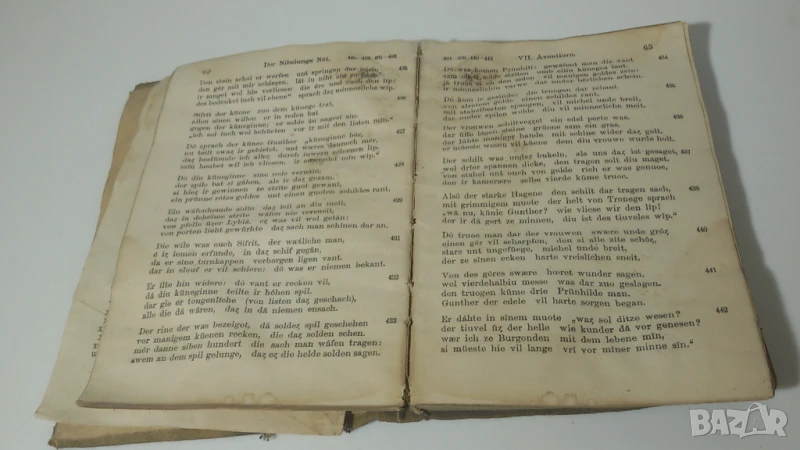 62 Der Nibelunge Nôt.
Den stein schol er werfen und springen dar
den gêr mit mir schiezen. lât iu niht
ir muget wol hie verliesen die êre und ouch den lîp;
des bedenket iuch vil ebene" sprach daȥ minneclîche wîp.
426
Sîfrit der küene zuo dem künege trat,
allen sînen willen er in reden bat
gegen der küneginne; er solde ân angest sîn.
„ich sol iuch wol behüeten vor ir mit den listen mîn."
427
Dô sprach der künec Gunther „küneginne hêr,
nu teilt swaȥ ir gebietet. und wæres dannoch mêr,
daȥ bestüende ich alleȥ durch iuwern schœnen lîp.
mîn houbet wil ich vliesen, ir enwerdet mîn wîp."
428
Dô diu küneginne sîne rede vernam,
der spile bat si gâhen, als ir daȥ gezam.
si hieȥ ir gewinnen ze strîte guot gewant,
ein prünne rôtes goldes unt einen guoten schildes rant.
429
Ein wâfenhemde sîdîn daȥ leit an diu meit,
daȥ in deheime strîte wâfen nie versneit,
von pfelle ûȥer Lybiâ. eȥ was vil wol getân:
von porten lieht gewürhte daȥ sach man schînen dar an.
431
Die wîle was ouch Sîfrit, der wætlîche man,
ê iȥ iemen erfunde, in daȥ schif gegân,
da er sîne tarnkappen verborgen ligen vant.
dar in slouf er vil schiere: dô was er niemen bekant.
432
Er îlte hin widere: dô vant er recken vil,
dâ diu küneginne teilte ir hôhen spil.
dar gie er tougenlîche (von listen daȥ geschach),
alle die dâ wâren, daȥ in dâ niemen ensach.
433
Der rinc der was bezeiget, dâ soldeȥ spil geschehen
vor manigem küenen recken, die daȥ solden sehen.
mêr danne siben hundert die sach man wâfen tragen:
swem an dem spil gelunge, daȥ eȥ die helde solden sagen.
VII. Aventiure. 63
434
Dô was komen Prünhilt: gewâfent man die vant
sam ob si solde strîten umb elliu küneges lant.
jâ truoc si ob den sîdin vil manigen goldes zein:
ir minneclîchiu varwe
435
Dô kom ir gesinde: die truogen dar zehant
von alrôtem golde einen schildes rant,
mit stahelherten spangen, vil michel unde breit,
dar under spilen wolde diu vil minneclîche meit.
Der vrouwen schiltveȥȥel ein edel porte was.
dar ûffe lâgen steine grüene sam ein gras.
der lûhte maniger hande mit schîne wider daȥ golt.
er müeste wesen vil küene dem diu vrouwe wurde holt.
Der schilt was under bukeln, als uns daȥ ist gesaget,
wol drîer spannen dicke, den tragen solt diu maget.
von stahel unt ouch von golde rîch er was genuoc,
den ir kamerære selbe vierde kûme truoc.
438
Alsô der starke Hagene den schilt dar tragen sach,
mit grimmigem muote der helt von Tronege sprach
„wâ nu, künic Gunther? wie vliese wir den lîp!
der ir dâ gert ze minnen, diu ist des tiuveles wîp."
440
Dô truoc man dar der vrouwen swære unde grôȥ
einen gêr vil scharpfen, den si alle zîte schôȥ,
starc unt ungefüege, michel unde breit,
der ze sînen ecken harte vreislîchen sneit.
441
Von des gêres swære hœret wunder sagen.
wol vierdehalbiu messe was dar zuo geslagen.
den truogen kûme drîe Prünhilde man.
Gunther der edele vil harte sorgen began.
442
Er dâhte in sînem muote „waȥ sol ditze wesen?
der tiuvel ûȥ der helle wie kunder dâ vor genesen?
wær ich ze Burgonden mit dem lebene mîn,
si müeste hie vil lange vrî vor mîner minne sîn."
BAZAR